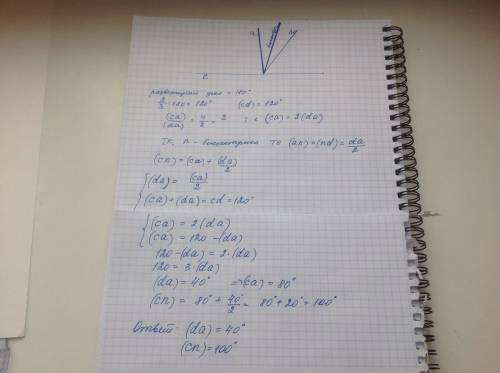 a d
c
развёрнутый угол = 180°
2/3 · 180 = 120° (cd) = 120°
(ca)/(da) = 4/2 = 2 т.е (ca) = 2(da)
Т.к. n - биссектриса то (an) = (nd) = da/2
(cn) = (ca) + (da)/2
(da) = (ca)/2
(ca) + (da) = cd = 120°
(ca) = 2(da)
(ca) = 120 - (da)
120 - (da) = 2 · (da)
120 = 3 · (da)
(da) = 40° => (ca) = 80°
(cn) = 80° + 40°/2 = 80° + 20° = 100°
Ответ: (da) = 40°
(cn) = 100°